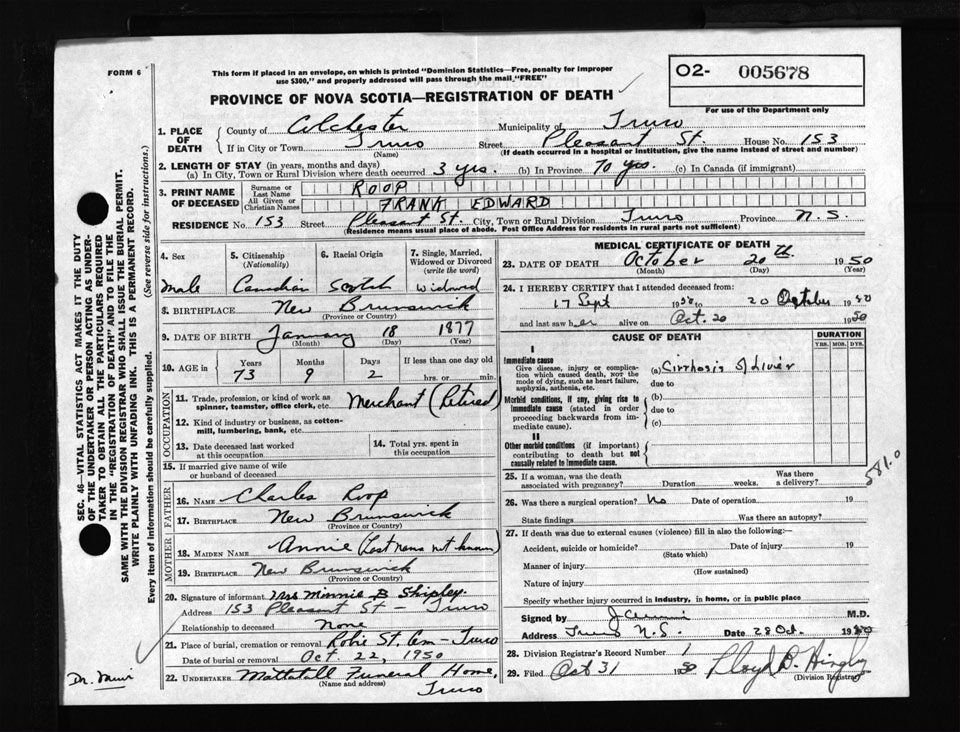 FORM 6
This form if placed in an envelope, on which is printed "Dominion Statistics—Free, penalty for improper
use $300," and properly addressed will pass through the mail "FREE"
O2- 005678
For use of the Department only
PROVINCE OF NOVA SCOTIA—REGISTRATION OF DEATH
SEC. 46—VITAL STATISTICS ACT MAKES IT THE DUTY
OF THE UNDERTAKER OR PERSON ACTING AS UNDER-
TAKER TO OBTAIN ALL THE PARTICULARS REQUIRED
IN THE "REGISTRATION OF DEATH" AND TO FILE THE
SAME WITH THE DIVISION REGISTRAR WHO SHALL ISSUE THE BURIAL PERMIT.
WRITE PLAINLY WITH UNFADING INK. THIS IS A PERMANENT RECORD.
Every item of information should be carefully supplied. (See reverse side for instructions.)
1. PLACE OF DEATH
County of Colchester Municipality of Truro
If in City or Town Truro Street Pleasant St. House No. 153
(Name) (If death occurred in a hospital or institution, give the name instead of street and number)
2. LENGTH OF STAY (in years, months and days)
(a) In City, Town or Rural Division where death occurred 3 yrs. (b) In Province 70 yrs. (c) In Canada (if immigrant)
3. PRINT NAME OF DECEASED
Surname or Last Name ROOP
All Given or Christian Names FRANK EDWARD
RESIDENCE No. 153 Street Pleasant St. City, Town or Rural Division Truro Province N.S.
(Residence means usual place of abode. Post Office Address for residents in rural parts not sufficient)
4. Sex
male
5. Citizenship
(Nationality)
Canadian
6. Racial Origin
Scotch
7. Single, Married,
Widowed or Divorced
(write the word)
Widowed
8. BIRTHPLACE New Brunswick
(Province or Country)
9. DATE OF BIRTH January 18 1877
(Month) (Day) (Year)
10. AGE in
Years Months Days If less than one day old
73 9 2 hrs. or min.
OCCUPATION
11. Trade, profession, or kind of work as
spinner, teamster, office clerk, etc. Merchant (Retired)
12. Kind of industry or business, as cotton-
mill, lumbering, bank, etc.
13. Date deceased last worked
at this occupation
14. Total yrs. spent in
this occupation
15. If married give name of wife
or husband of deceased
FATHER
16. NAME Charles Roop
17. BIRTHPLACE New Brunswick
(Province or Country)
MOTHER
18. MAIDEN NAME Annie (Last name not known)
19. BIRTHPLACE New Brunswick
(Province or Country)
20. Signature of informant Mrs Minnie B Shipley.
Address 153 Pleasant St - Truro
Relationship to deceased None
21. Place of burial, cremation or removal Robie St. Cem - Truro
Date of burial or removal Oct. 22, 1950
22. UNDERTAKER Mattatall Funeral Home,
(Name and address) Truro
Dr. Muir
MEDICAL CERTIFICATE OF DEATH
23. DATE OF DEATH October 20th 1950
(Month) (Day) (Year)
24. I HEREBY CERTIFY that I attended deceased from:
17 Sept 1950 to 20 October 1950
and last saw her alive on Oct. 20 1950
CAUSE OF DEATH
DURATION
YRS. MOS. DYS.
I
Immediate cause
Give disease, injury or complica-
tion which caused death, NOT the
mode of dying, such as heart failure,
asphyxia, asthenia, etc.
(a) Cirrhosis of Liver
due to
Morbid conditions, if any, giving rise to
immediate cause (stated in order
proceeding backwards from im-
mediate cause).
(b)
due to
(c)
II
Other morbid conditions (if important)
contributing to death but not
causally related to immediate cause.
581.0
25. If a woman, was the death
associated with pregnancy? Duration weeks. Was there
a delivery?
26. Was there a surgical operation? No Date of operation 19
State findings Was there an autopsy?
27. If death was due to external causes (violence) fill in also the following:—
Accident, suicide or homicide? Date of injury 19
(State which)
Manner of injury
(How sustained)
Nature of injury
Specify whether injury occurred in industry, in home, or in public place
Signed by M.D.
Address Truro N.S. Date 28 Oct. 1950
28. Division Registrar's Record Number 1
29. Filed Oct 31 1950 Lloyd D. Hingley
(Division Registrar)